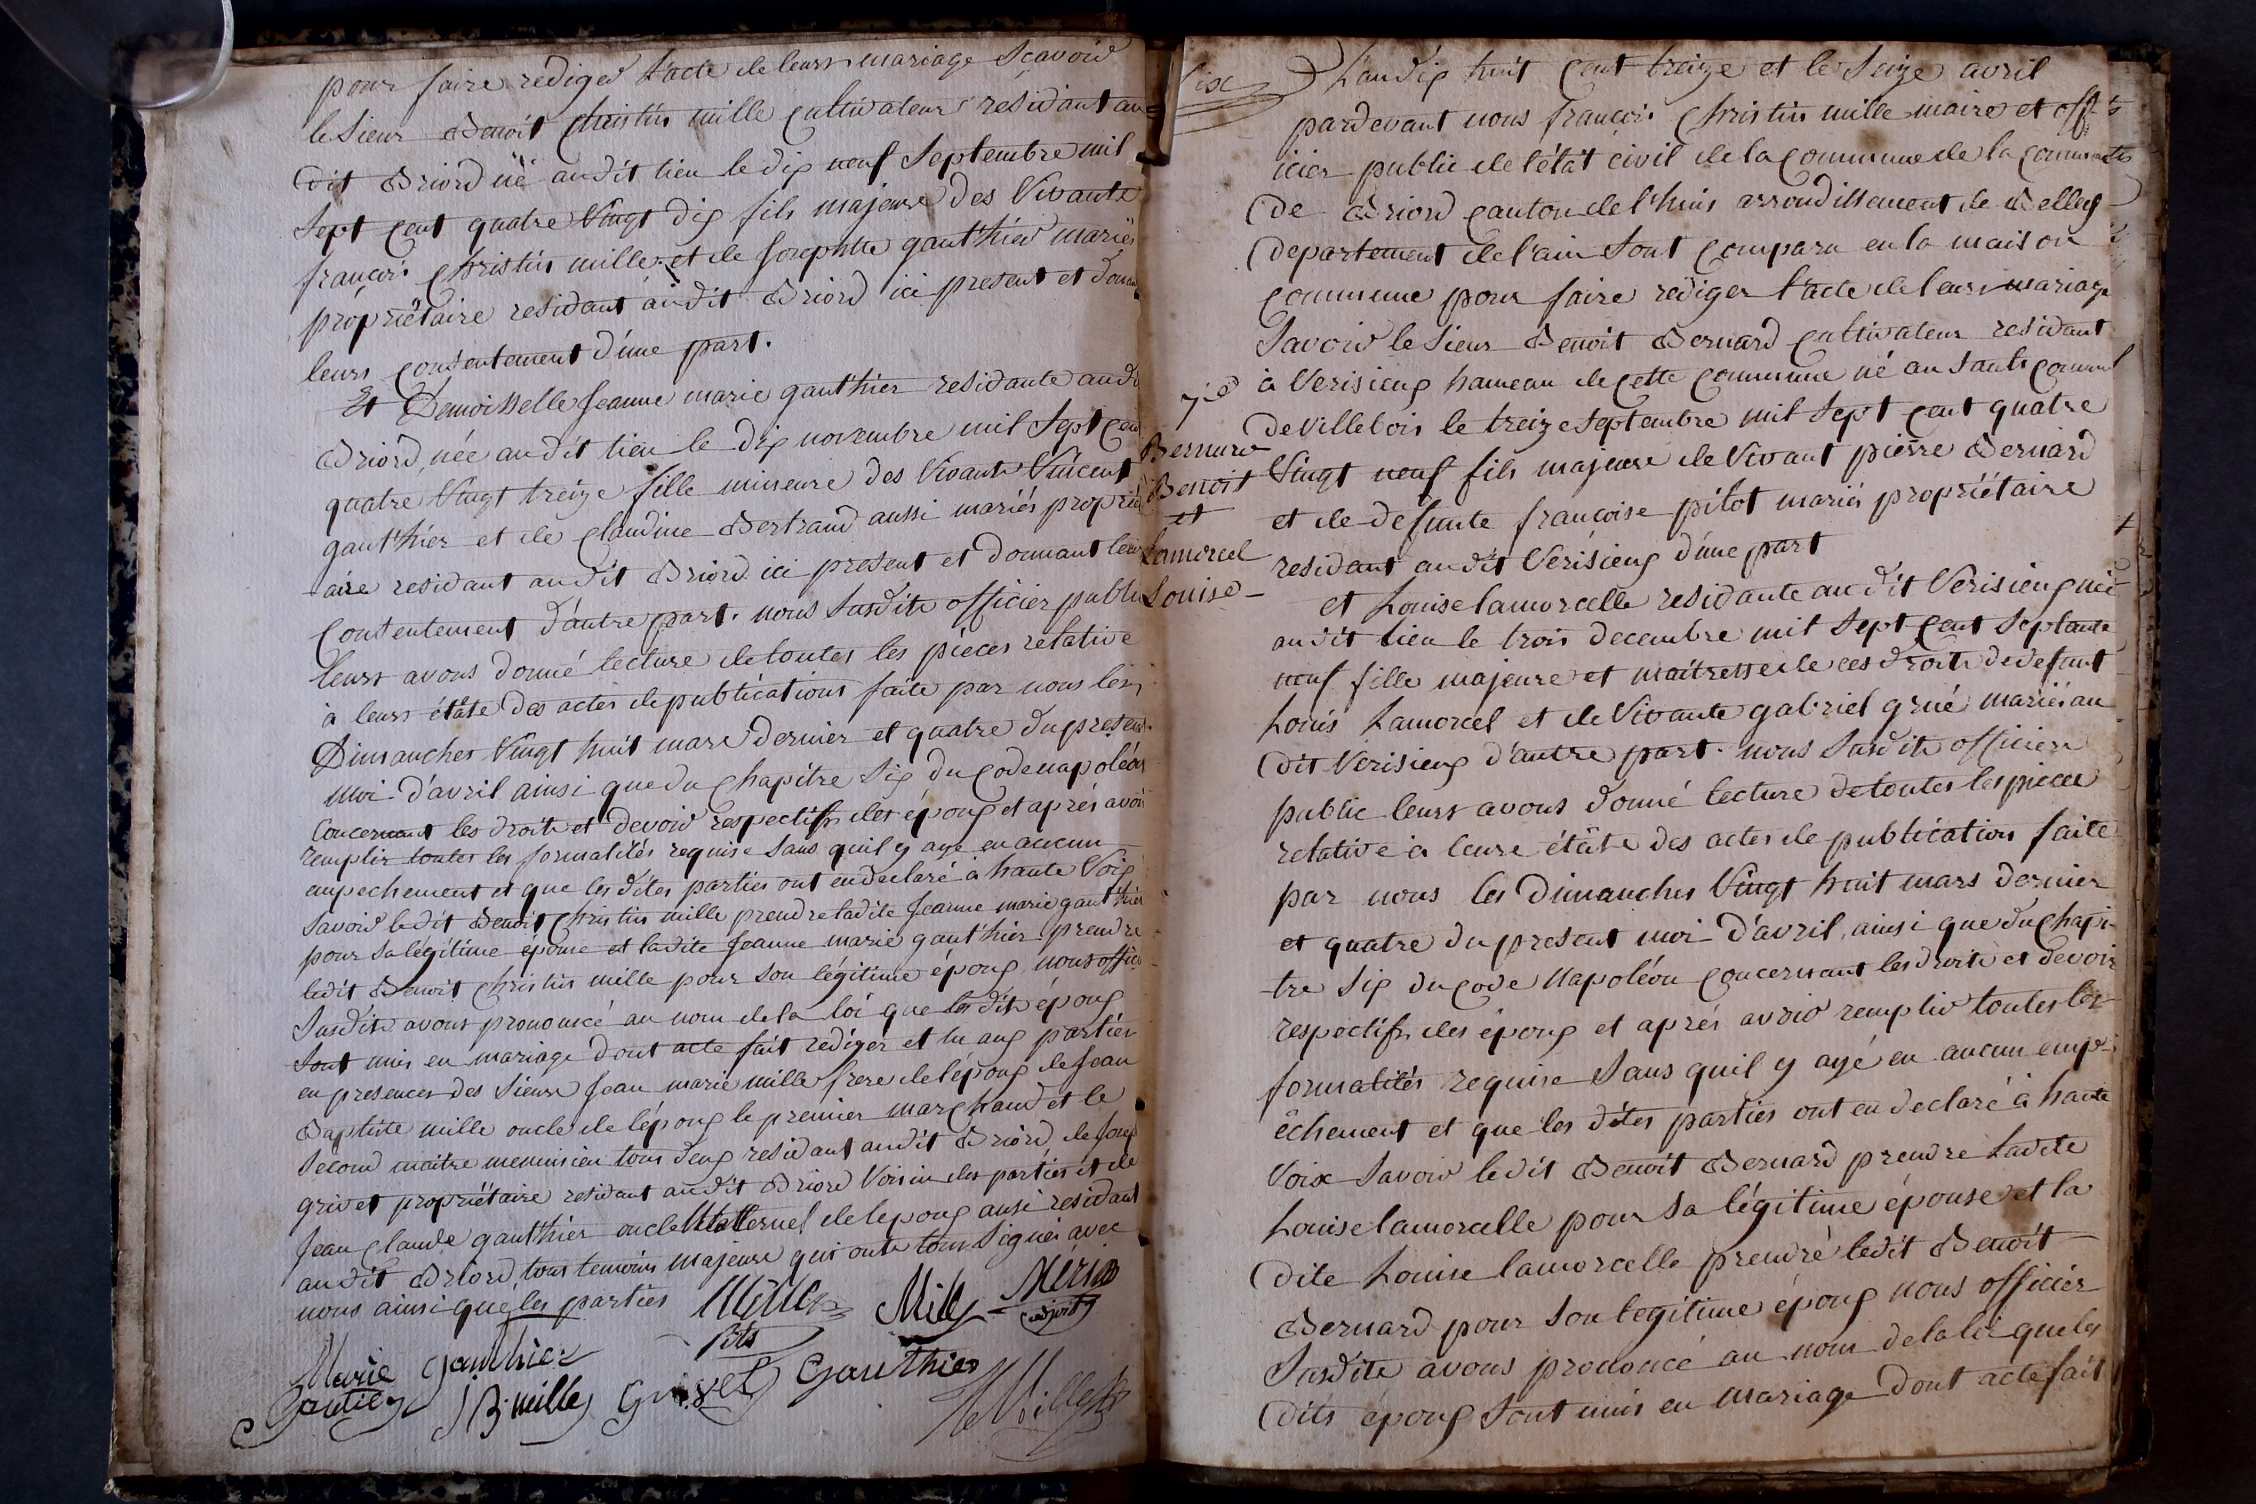 pour faire rediger l'acte de leurs mariage Sçavoir
le Sieur Benoit Christin mille cultivateur residant au
dit Briord né audit lieu le dix neuf Septembre mil
Sept cent quatre Vingt dix fils majeure des Vivants
françois Christin mille et de Josephtte gauthier mariés
propriëtaire residant audit Briord ici present et donnant
leurs consentement d'une part.
Et Demoisselle Jeanne marie gauthier residante audit
Briord, née audit lieu le dix novembre mil Sept cent
quatre Vingt treize fille mineure des Vivants Vincent
gauthier et de Claudine Bertrand aussi mariés propriét
aire residant audit Briord ici present et donnant leur
consentement d'autre part. nous Susdits officier public
leurs avons donné lecture de toutes les pièces relative
à leurs états des actes de publications faite par nous les
Dimanches Vingt huit mars dernier et quatre du present
moi d'avril ainsi que du chapitre Six du code napoléon
Concernant les droits et devoir respectifs des époux et aprés avoir
remplir toutes les formalités requise Sans quil y aye eu aucun
empechement et que les dites parties ont eu declaré à haute Voix
Savoir ledit Benoit Christin mille prendre ladite Jeanne marie gauthier
pour Sa légitime épouse et ladite Jeanne marie gauthier prendre
ledit Benoit Christin mille pour son légitime époux, nous officier
Susdits avons prononcé au nom de la loi que les dits époux
Sont unis en mariage dont acte fait rediger et lu aux parties
en presences des Sieurs Jean marie mille frere de l'époux de Jean
Baptiste mille oncle de l'époux le premier marchand et le
Second maitre menuisier tous deux residant audit Briord de Joseph
grivet propriëtaire residant audit Briord Voisin des parties et de
Jean Claude gauthier oncle Maternel de l'epoux aussi residant
audit Briord, tous temoins majeure qui onts tous Signés avec
nous ainsi que les parties
Mille fils Mille Mérier adjoint
Marie gauthier
Gautier J B mille Grivet Gauthier
Mille
Six
L'an dix huit cent treize et le Seize avril
pardevant nous françois Christin mille maire et off
icier public de l'état civil de la commune de la commune
de Briord canton de l'huis arrondissement de Belley
departement de l'ain Sont comparu en la maison
commune pour faire rediger l'acte de leurs mariage
Savoir le Sieur Benoit Bernard cultivateur residant
à Verisieux hameau de cette commune né au Sault commune
de Villebois le treize Septembre mil Sept cent quatre
7e
Bernard
Benoit
et
Lamorcel
Louise
Vingt neuf fils majeure de Vivant pierre Bernard
et de defunte françoise pitot mariés propriëtaire
residant audit Vérisieux d'une part
et Louise lamorcelle residante audit Verisieux née
audit lieu le trois decembre mil Sept cent Septante
neuf fille majeure et maitresse de ces droits de defunt
Louis Lamorcel et de Vivante gabriel grué mariés au
dit Verisieux d'autre part. nous Susdits officier
public leurs avons donné lecture de toutes les pieces
relative à leure états des actes de publication faite
par nous les Dimanches Vingt huit mars dernier
et quatre du present moi d'avril, ainsi que du Chapi-
tre Six du code Napoléon concernant les droits et devoir
respectifs des époux et aprés avoir remplir toutes les
formalités requise Sans quil y ayé eu aucun emp-
êchement et que les dites parties ont eu declaré à haute
Voix Savoir ledit Benoit Bernard prendre Ladite
Louise lamorcelle pour Sa légitime épouse et la
dite Louise lamorcelle prendré ledit Benoit
Bernard pour Son legitime époux nous officier
Susdits avons prononcé au nom de la loi que les
dits époux Sont unis en mariage dont acte fait